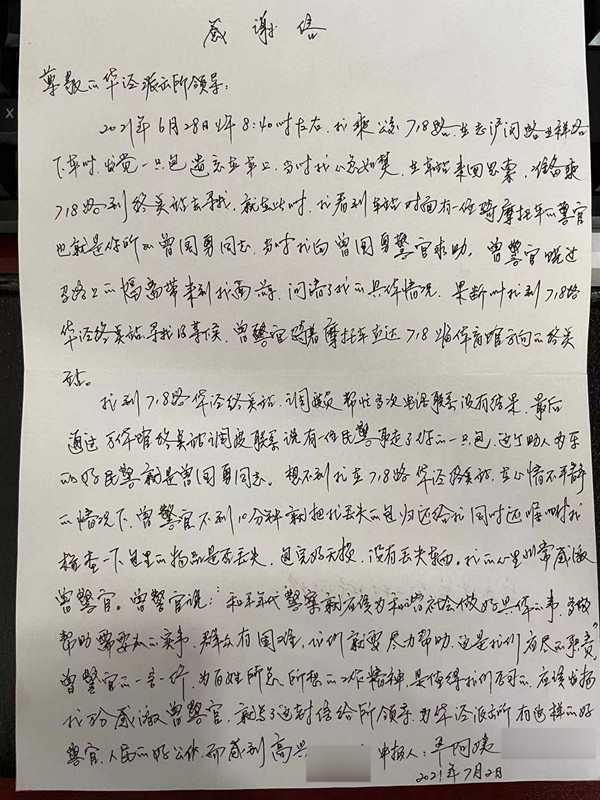 感谢信
尊敬的华泾派出所领导:
2021年6月28日上午8:40时左右,我乘公交718路,在龙沪闵路上祥路
下车时,发觉一只包遗忘在车上,当时我心急如焚,在车站来回思索,准备乘
718路到终点站去寻找,就在此时,我看到车站对面有一位骑摩托车的警官
也就是你所的曾国勇同志,当时我向曾国勇警官求助。曾警官跳过
马路上的隔离带来到我面前,问清了我的具体情况,果断叫我到718路
华泾终点站寻找及等候,曾警官骑着摩托车直达718路体育馆方向的终点
站。
我到718路华泾终点站,调度员帮忙多次电话联系没有结果,最后
通过体馆终点站调度联系说有一位民警取走了你的一只包,这个助人为乐
的好民警就是曾国勇同志。想不到我在718路华泾终点站,在心情不平静
的情况下,曾警官不到10分钟就把我丢失的包归还给我同时还嘱咐我
检查一下包里的物品是否丢失,包完好无损,没有丢失东西。我的心里非常感激
曾警官。曾警官说:"和平年代警察就应该为和谐社会做好具体的事,多做
帮助需要的实事,群众有困难,他们就要尽力帮助,这是我们应尽的职责"
曾警官的一言一行,为百姓所急所想的工作精神,是值得我们的,应该发扬
我十分感激曾警官,就写了这封信给所领导,为华泾派出所有这样的好
警官,人民的好公仆,而感到高兴 申报人:阿姨
2021年7月2日